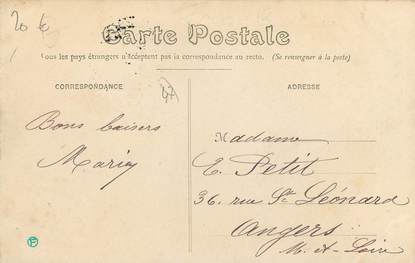 20 6
Carte Postale
Tous les pays étrangers n'acceptent pas la correspondance au recto. (Se renseigner à la poste)
CORRESPONDANCE
ADRESSE
47
Bons baisers
Marie
Madame
E. Petit
36, rue St Léonard
Angers
M. et Loire